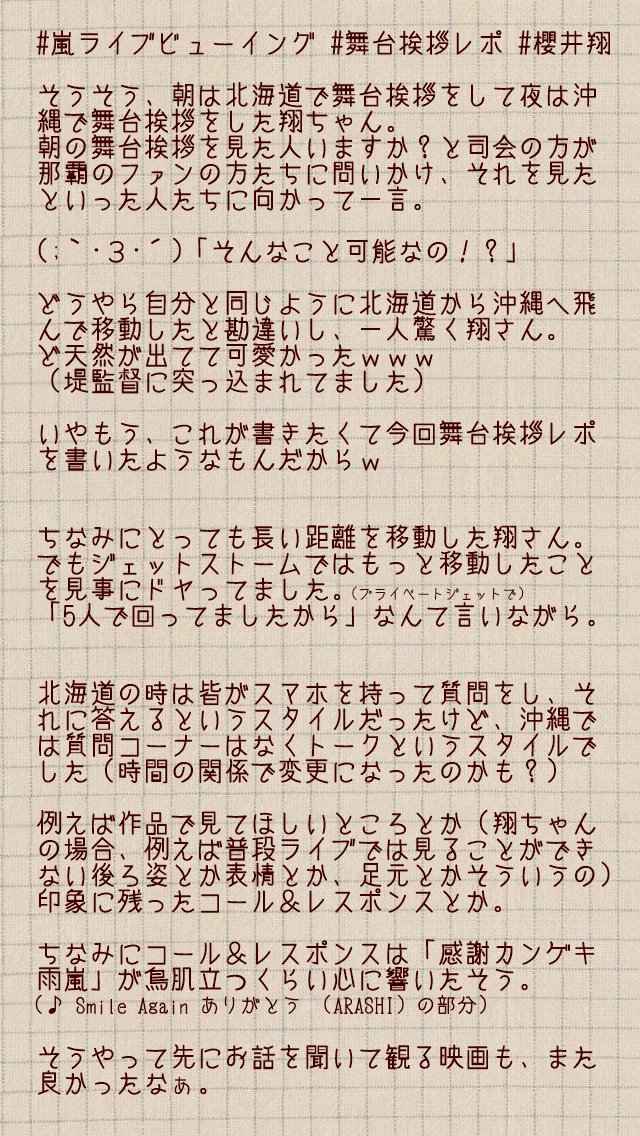 #嵐ライブビューイング #舞台挨拶レポ #櫻井翔
そうそう、朝は北海道で舞台挨拶をして夜は沖
縄で舞台挨拶をした翔ちゃん。
朝の舞台挨拶を見た人いますか？と司会の方が
那覇のファンの方たちに問いかけ、それを見た
といった人たちに向かって一言。
(;｀･3･´)「そんなこと可能なの！？」
どうやら自分と同じように北海道から沖縄へ飛
んで移動したと勘違いし、一人驚く翔さん。
ど天然が出てて可愛かったｗｗｗ
（堤監督に突っ込まれてました）
いやもう、これが書きたくて今回舞台挨拶レポ
を書いたようなもんだからｗ
ちなみにとっても長い距離を移動した翔さん。
でもジェットストームではもっと移動したこと
を見事にドヤってました。(プライベートジェットで)
「5人で回ってましたから」なんて言いながら。
北海道の時は皆がスマホを持って質問をし、そ
れに答えるというスタイルだったけど、沖縄で
は質問コーナーはなくトークというスタイルで
した（時間の関係で変更になったのかも？）
例えば作品で見てほしいところとか（翔ちゃん
の場合、例えば普段ライブでは見ることができ
ない後ろ姿とか表情とか、足元とかそういうの）
印象に残ったコール＆レスポンスとか。
ちなみにコール＆レスポンスは「感謝カンゲキ
雨嵐」が鳥肌立つくらい心に響いたそう。
(♪ Smile Again ありがとう （ARASHI）の部分)
そうやって先にお話を聞いて観る映画も、また
良かったなぁ。